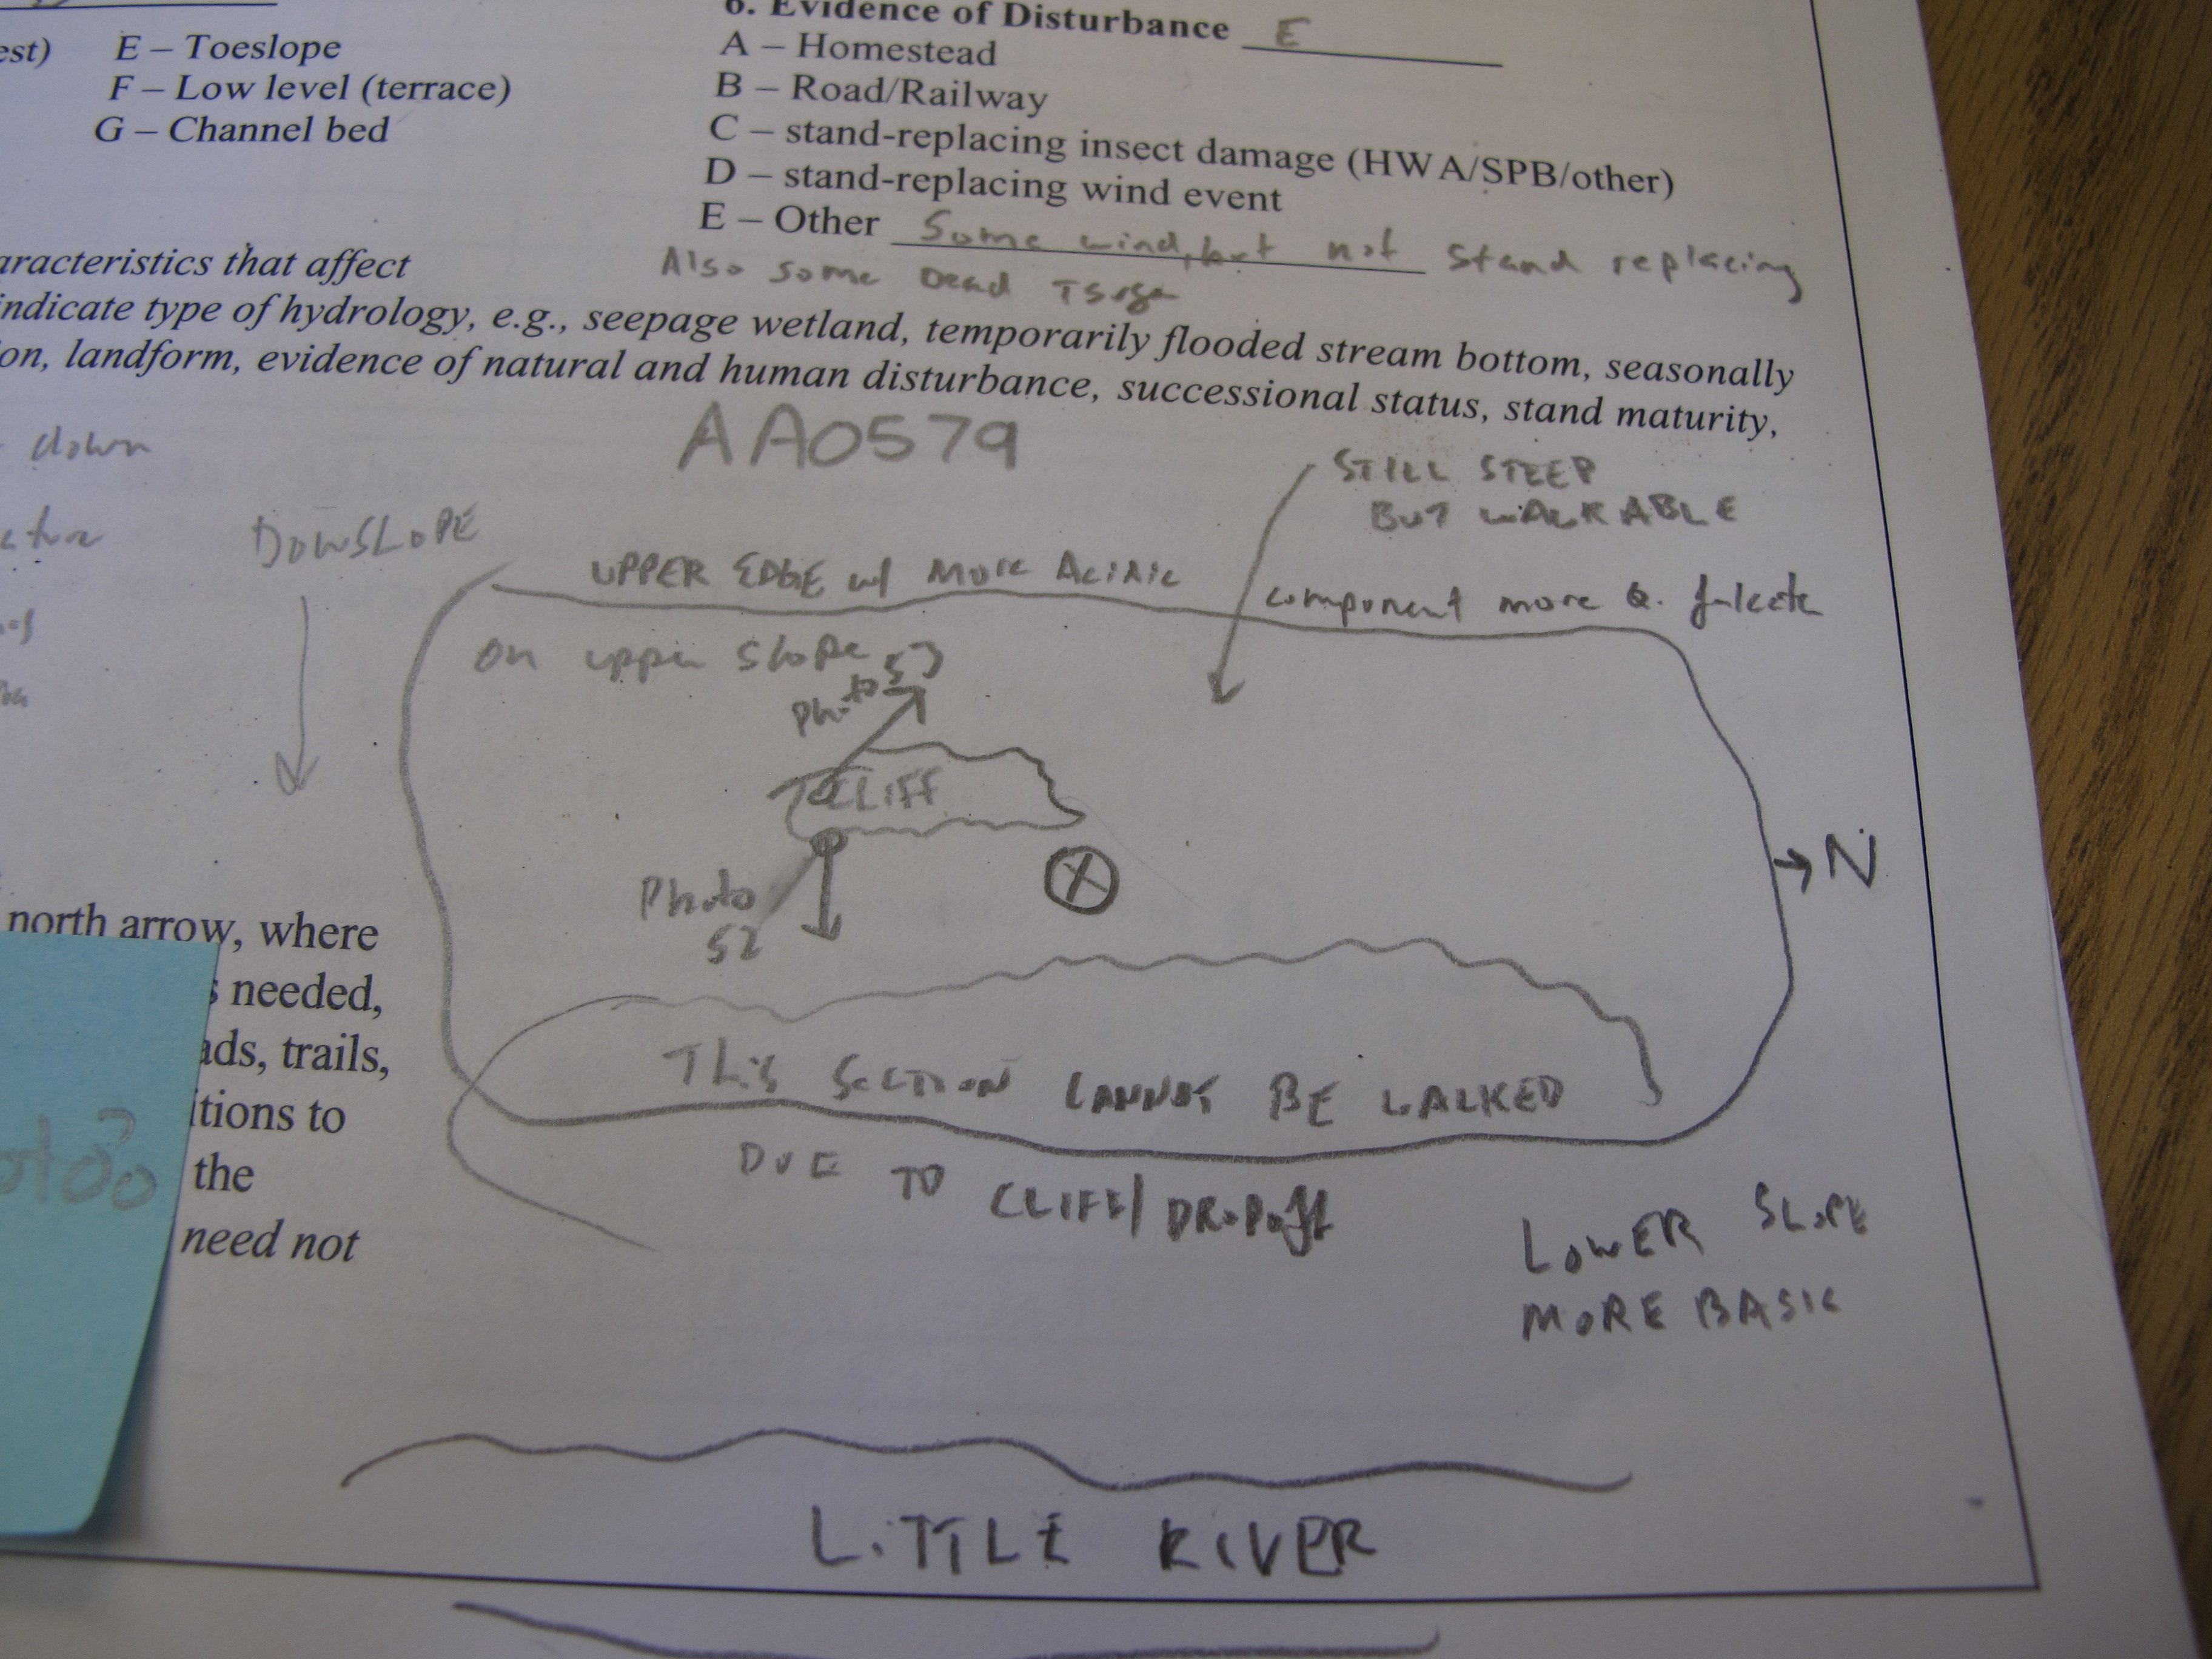 6. Evidence of Disturbance E
est) E – Toeslope
A – Homestead
F – Low level (terrace)
B – Road/Railway
G – Channel bed
C – stand-replacing insect damage (HWA/SPB/other)
D – stand-replacing wind event
E – Other Some wind, but not stand replacing
Also some Dead Tsuga
aracteristics that affect
indicate type of hydrology, e.g., seepage wetland, temporarily flooded stream bottom, seasonally
on, landform, evidence of natural and human disturbance, successional status, stand maturity,
down
AA0579
STILL STEEP
BUT WALKABLE
DOWSLOPE
UPPER EDGE w/ More Acidic component more Q. falcata
on upper slope
Photo 53
CLIFF
N
Photo
52
north arrow, where
s needed,
ads, trails,
itions to
the
need not
This SECTION CANNOT BE WALKED
DUE TO CLIFF/DROPOff
LOWER SLOPE
MORE BASIC
LiTTLE RIVER